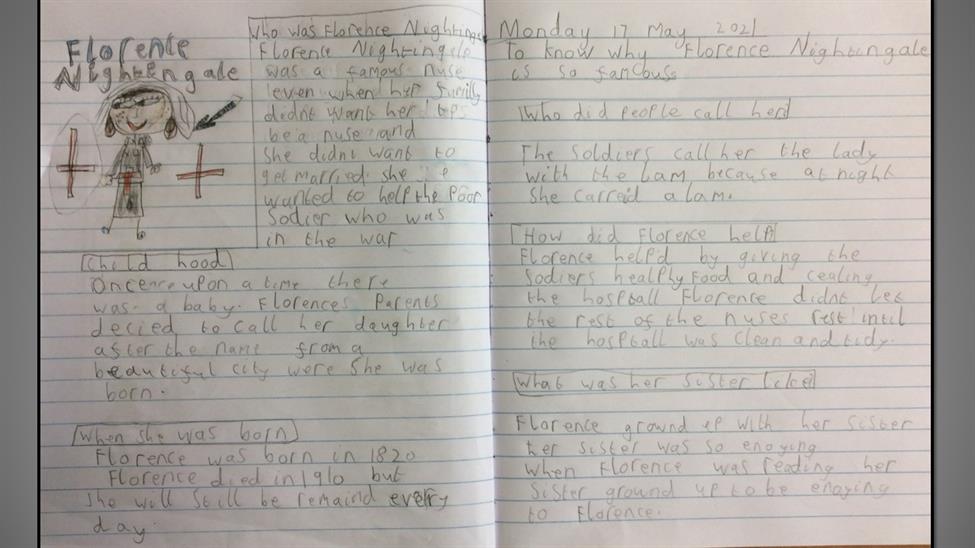 Florence
Nightengale
Who was Florence Nightingale
Florence Nightingale
was a famous nuse
even when her
didnt want her
be a nuse and
She didnt want to
get married. she
wanted to help the Poor
Sodier who was
in the war
Child hood
Onceonce upon a time there
was a baby. Florences Parents
decied to call her daughter
after the name from a
beautiful city were She was
born.
When she was born
Florence was born in 1820
Florence died in 1910 but
She will Still be remaind every
day.
Monday 17 May 2021
To know why Florence Nightingale
is so famouse
Who did people call her
The Soldiers call her the lady
with the lam, because at night
She carreid a lam.
How did Florence help
Florence helpd by giving the
Sodiers healphy food and cealing
the hosptall Florence didnt let
the rest of the nuses rest until
the hosptall was Clean and tidy.
What was her Sister like
Florence ground up with her Sister
her sister was so enoying
When Florence was reading her
Sister ground up to be enoying
to Florence.